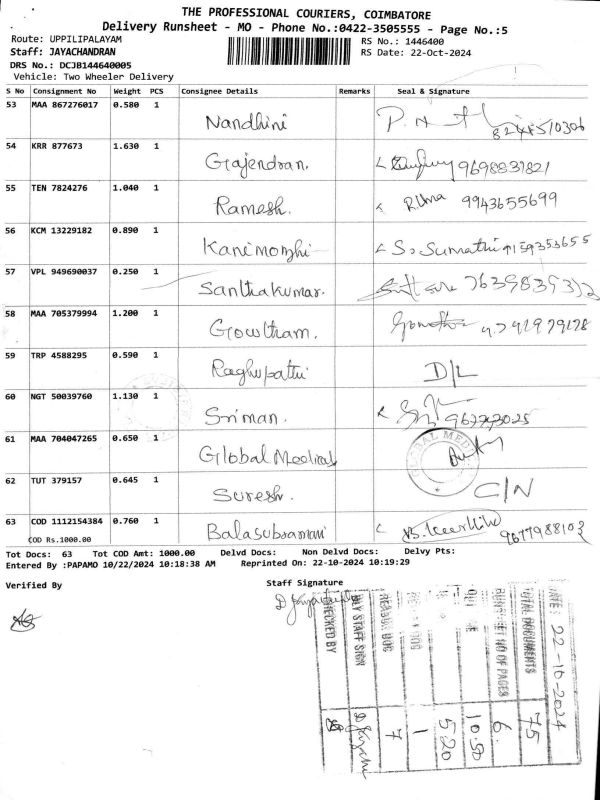 THE PROFESSIONAL COURIERS, COIMBATORE
Delivery Runsheet - MO - Phone No.:0422-3505555 - Page No.:5
Route: UPPILIPALAYAM RS No.: 1446400
Staff: JAYACHANDRAN RS Date: 22-Oct-2024
DRS No.: DCJB144640005
Vehicle: Two Wheeler Delivery
S No Consignment No Weight PCS Consignee Details Remarks Seal & Signature
53 MAA 867276017 0.580 1 Nandhini
54 KRR 877673 1.630 1 Gajendran. 9698831821
55 TEN 7824276 1.040 1 Ramesh. 9943655699
56 KCM 13229182 0.890 1 Kanimozhi S. Sumathi 9159353655
57 VPL 949690037 0.250 1 Santhakumar.
58 MAA 705379994 1.200 1 Gowtham.
59 TRP 4588295 0.590 1 Raghupathi D/L
60 NGT 50039760 1.130 1 Sriman.
61 MAA 704047265 0.650 1 Global Medical GLOBAL MED
62 TUT 379157 0.645 1 Suresh. C/N
63 COD 1112154384 0.760 1 Balasubramani 9677988103
COD Rs.1000.00
Tot Docs: 63 Tot COD Amt: 1000.00 Delvd Docs: Non Delvd Docs: Delvy Pts:
Entered By :PAPAMO 10/22/2024 10:18:38 AM Reprinted On: 22-10-2024 10:19:29
Verified By Staff Signature
DATE: 22-10-2024
TOTAL DOCUMENTS 75
RUNSHEET NO OF PAGES 6
10:50
5:20
1
7
DLY STAFF SIGN
CHECKED BY